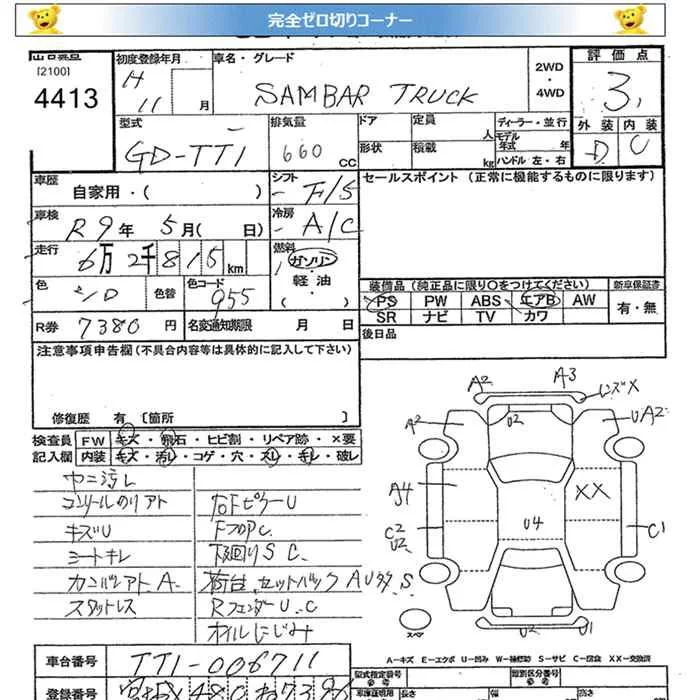 完全ゼロ切りコーナー
[2100]
4413
初度登録年月
H 11 月
車名・グレード
SAMBAR TRUCK
2WD
・
4WD
評価点
3
外装 内装
D C
型式
GD-TT1
排気量
660 CC
ドア
形状
定員
人
積載
kg
ディーラー・並行
モデル年式 年
ハンドル 左・右
車歴
自家用・( )
シフト
F/5
車検
R9年 5月( 日)
冷房
A/C
走行
6万 2千 8 1 5 km
燃料
ガソリン
軽油
( )
色
色替
色コード
955
R券 7380 円
名変通知期限 月 日
セールスポイント (正常に機能するものに限ります)
装備品 (純正品に限り○をつけてください)
新車保証書
PS PW ABS エアB AW
SR ナビ TV カワ
有・無
後日品
注意事項申告欄 (不具合内容等は具体的に記入して下さい)
修復歴 有 [箇所 ]
検査員 FW キズ・飛石・ヒビ割・リペア跡・×要
記入欄 内装 キズ・汚レ・コゲ・穴・スレ・キレ・破レ
ヤニ汚レ
コンソールのリアト
キズU
シートキレ
カンバンアト A.
スタットレス
右Fピラー U
Fフロア C.
下廻り S C.
荷台、セットバック A U多 S
Rフェンダー U. C
オイルにじみ
A2 A3 レンズX
A2 U2 UA2
A4 XX
C2 U2 U4 C1
スペア
U2 U1
A-キズ E-エクボ U-凹み W-補修跡 S-サビ C-腐食 XX-交換済
車台番号 TT1-006711
登録番号
型式指定番号
参考
類別区分番号
参考
長さ 幅 高さ